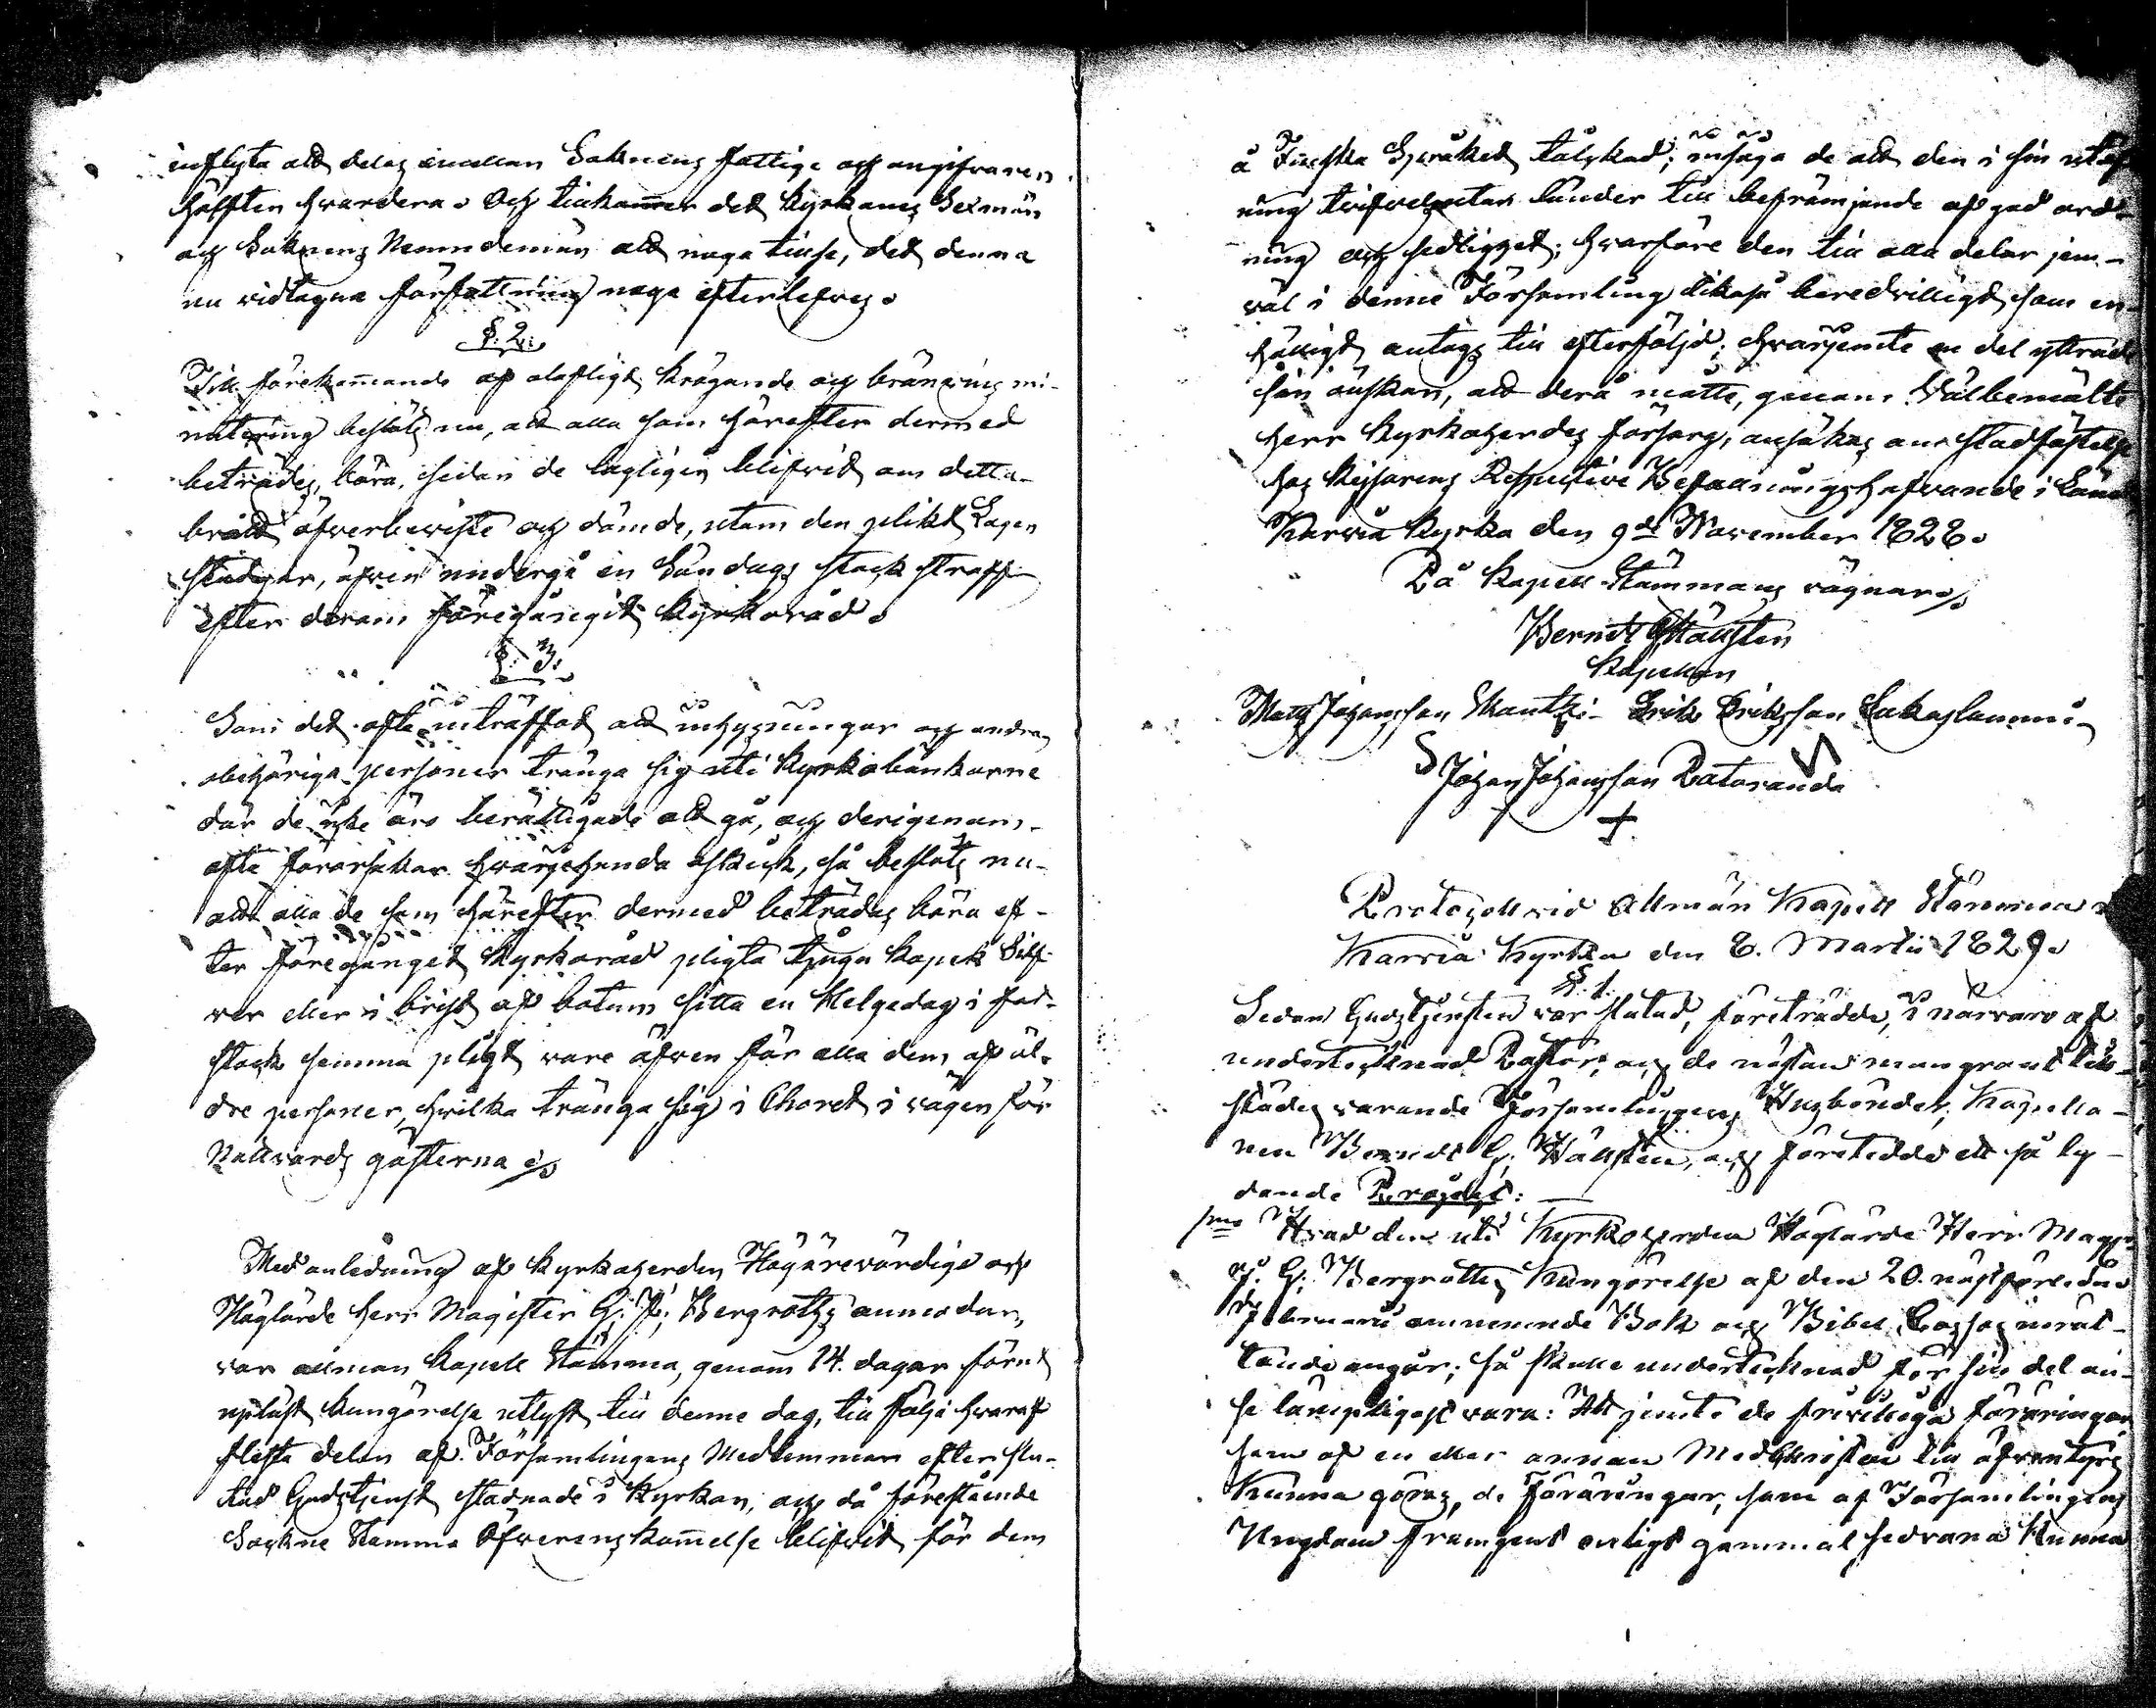 inflyta att delas emellan Soknens fattige och angifvaren
hälfften hvardera. Och tillkommer det Kyrkans Sexmän
och Soknens Nemndemän att noga tillse, det denna
nu vidtagna författning noga efterlefves.
§. 2.
Till förekommande af olofligt krögande och bränvins mi-
nutering beslöts nu, att alla som härefter dermed
beträdes, böra, sedan de lagligen blifvit om detta
brått öfverbeviste och dömde, utom den plikt Lagen
stadgar, äfven undergå en Söndags stock straff
efter derom föregånget Kyrkoråd.
§. 3.
Som det ofta inträffat att inhysningar och andra
obehöriga personer tränga sig uti Kyrkobänkarne
där de icke äro berättigade att gå, och derigenom
ofta förorsakar hvarjehanda oskick, så beslöts nu
att alla de som härefter dermed beträdas böra ef-
ter föregånget Kyrkoråd pligta tjugu Kopek Silf-
ver eller i brist af botum sitta en Helgedag i fot-
stock samma pligt vare äfven för alla dem af äl-
dre personer, hvilka tränga sig i Choret i vägen för
Nattvards gästerna
Med anledning af Kyrkoherden Högärevördige och
Höglärde Herr Magister G. J. Bergroths anmodan,
var allmän Kapell Stämma, genom 14. dagar förut
uppläst kungörelse utlyst till denne dag, till följe hvaraf
flesta delen af Församlingens Medlemmar efter slu-
tad Gudstjenst stadnade i Kyrkan, och då förestående
Sockne Stämma Öfverenskommelse blifvit för dem
å Finska Språket tålkad; insågo de att den i sin utöf-
ning tvifvelsutan länder till befrämjande af god ord-
ning och sedlighet; hvarföre den till alla delar jem-
väl i denne Församling likaså beredvilligt som en-
hälligt antogs till efterföljd; hvarjemte en del yttrade
sin önskan, att derå måtte, genom Välbemälte
Herr Kyrkoherdes försorg, ansökas om stadfästelse
hos Kejsarens Respective Befallningshafvande i Länet
Karvia Kyrka den 9de November 1828.
På Kapell Stämmans vägnar
Berndt G Hällsten
Kapellan
Mats Johansson Mantki Erik Eriksson Lukoslammi
Johan Johansson Ratovanda
Protocoll vid Allmän Kapell Stämma
Karvia Kyrka den 8. Martii 1829.
§. 1.
Sedan Gudstjensten var slutad, företrädde, i närvaro af
undertecknad Pastor, och de nästan mangrant till-
städes varande Församlingens Husbönder, Kapella-
nen Berndt G. Hällsten, och företedde ett så ly-
dande Project:
1mo Hvad den uti Kyrkoherden Höglärde Herr Mag.
J. G. Bergroths Kungörelse af den 20. nästförledne
Februarii omnemnde Bok och Bibel
angår; så skulle undertecknad för sin del an-
se lämpligast vara: Att jemte de frivilliga föräringar
som af en eller annan Medchristen till äfventyrs
kunna göras, de föräringar, som af Församlingens
Ungdom framgent enligt gammal sedvana kunna